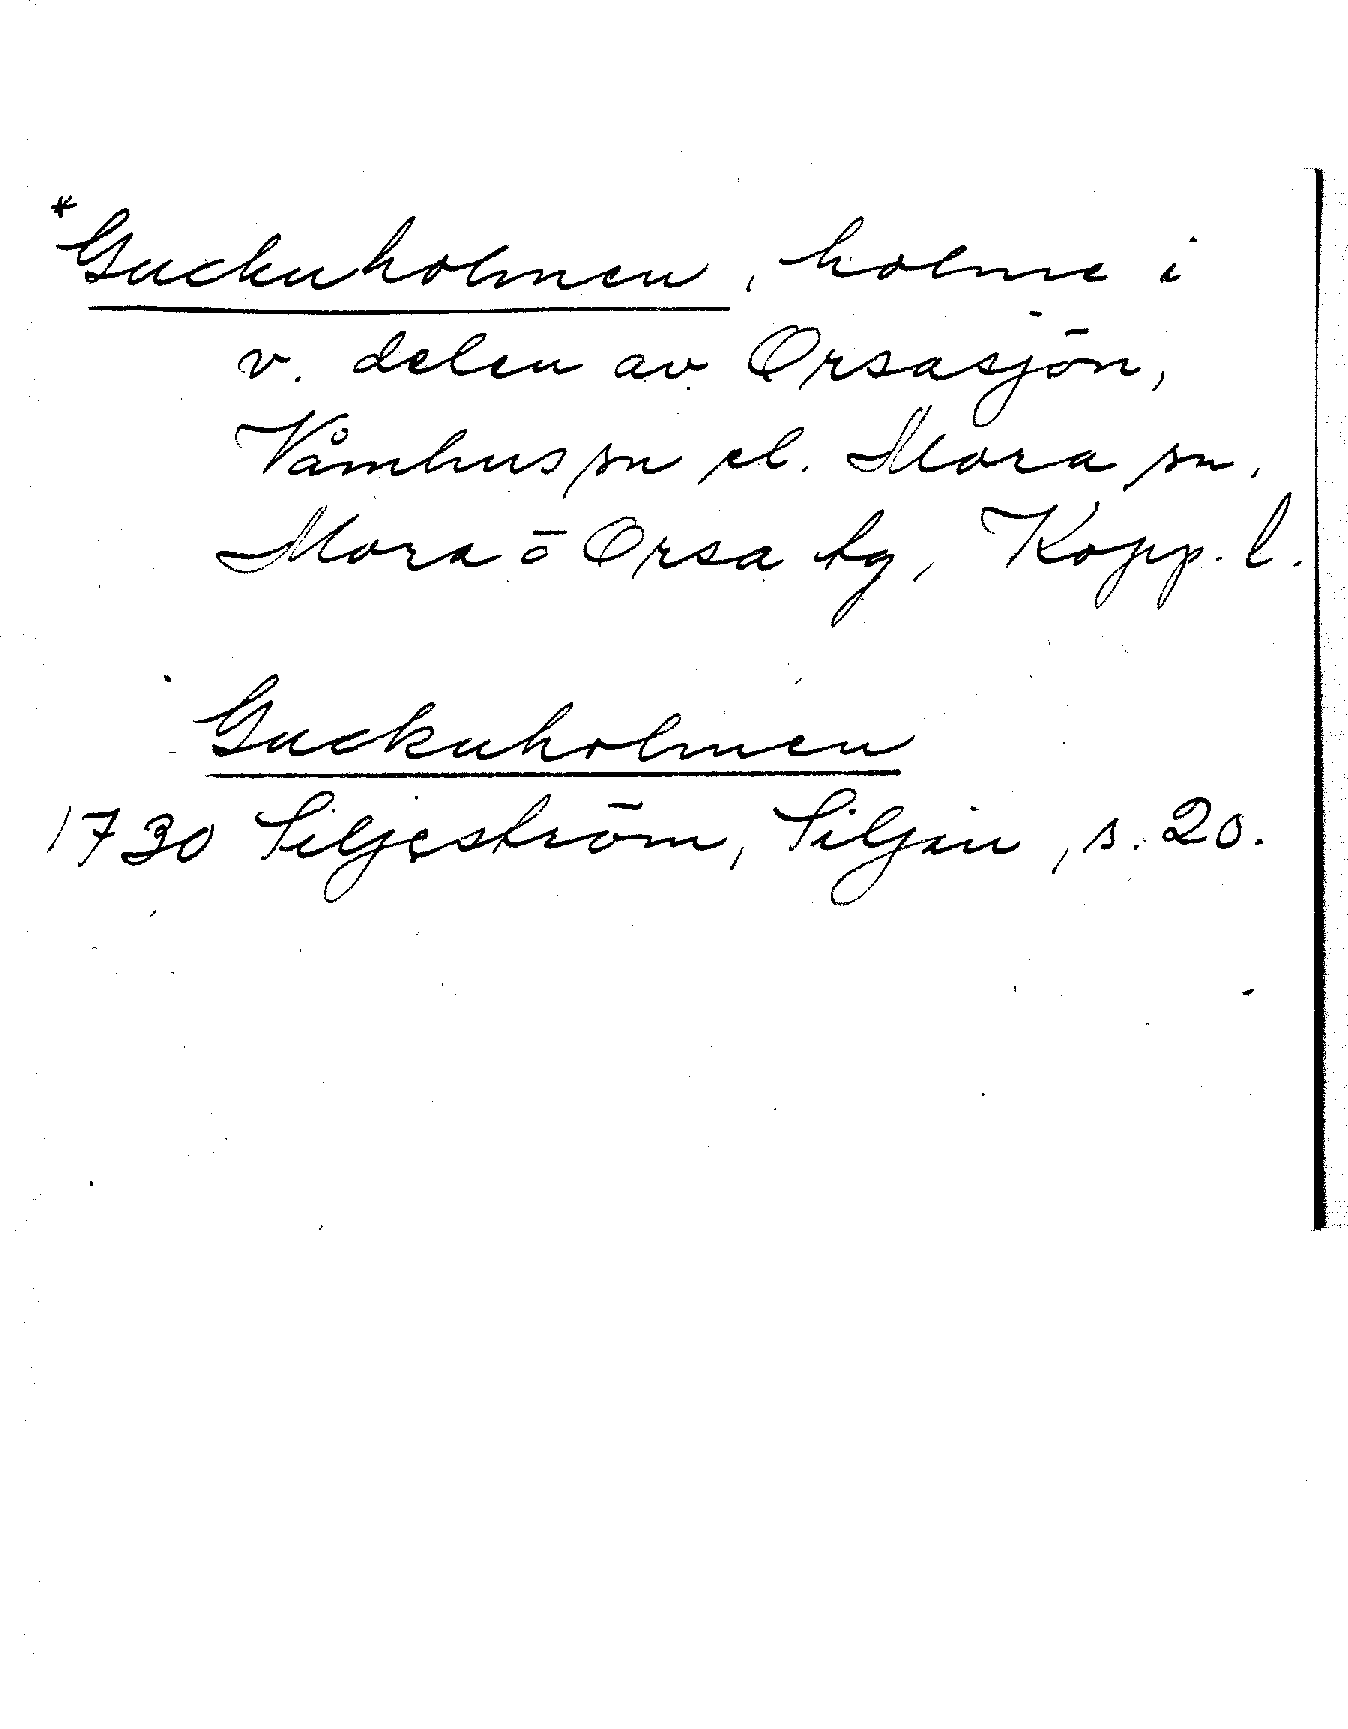 *Guckuholmen, holme i
v. delen av Orsasjön,
Våmhus sn el. Mora sn,
Mora o Orsa tg, Kopp. l.
Guckuholmen
1730 Siljeström, Siljan, s. 20.